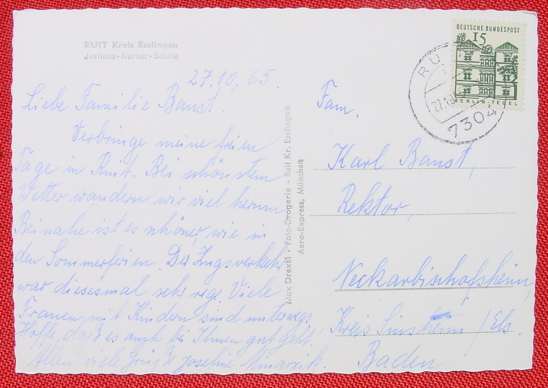 RUIT Kreis Esslingen
Justinus-Kerner-Schule
27.10.65.
Liebe Familie Banst.
Verbringe meine freien
Tage in Ruit. Bei schönstem
Wetter wandern wir viel herum
Bei nahe ist es schöner, wie in
den Sommerferien. Der Zugsverkehr
war diesesmal sehr rege. Viele
Frauen mit Kindern sind unterwegs.
Hoffe, dass es auch bei Ihnen gut geht.
viele Josefine
Max Drexel - Foto-Drogerie - Ruit Kr. Esslingen
Aero-Express, München
DEUTSCHE BUNDESPOST
15
BERLIN-TEGEL
RU
27.10
7304
Fam.
Karl Banst,
Rektor,
Neckarbischofsheim,
Kreis Sinsheim /Els.
Baden